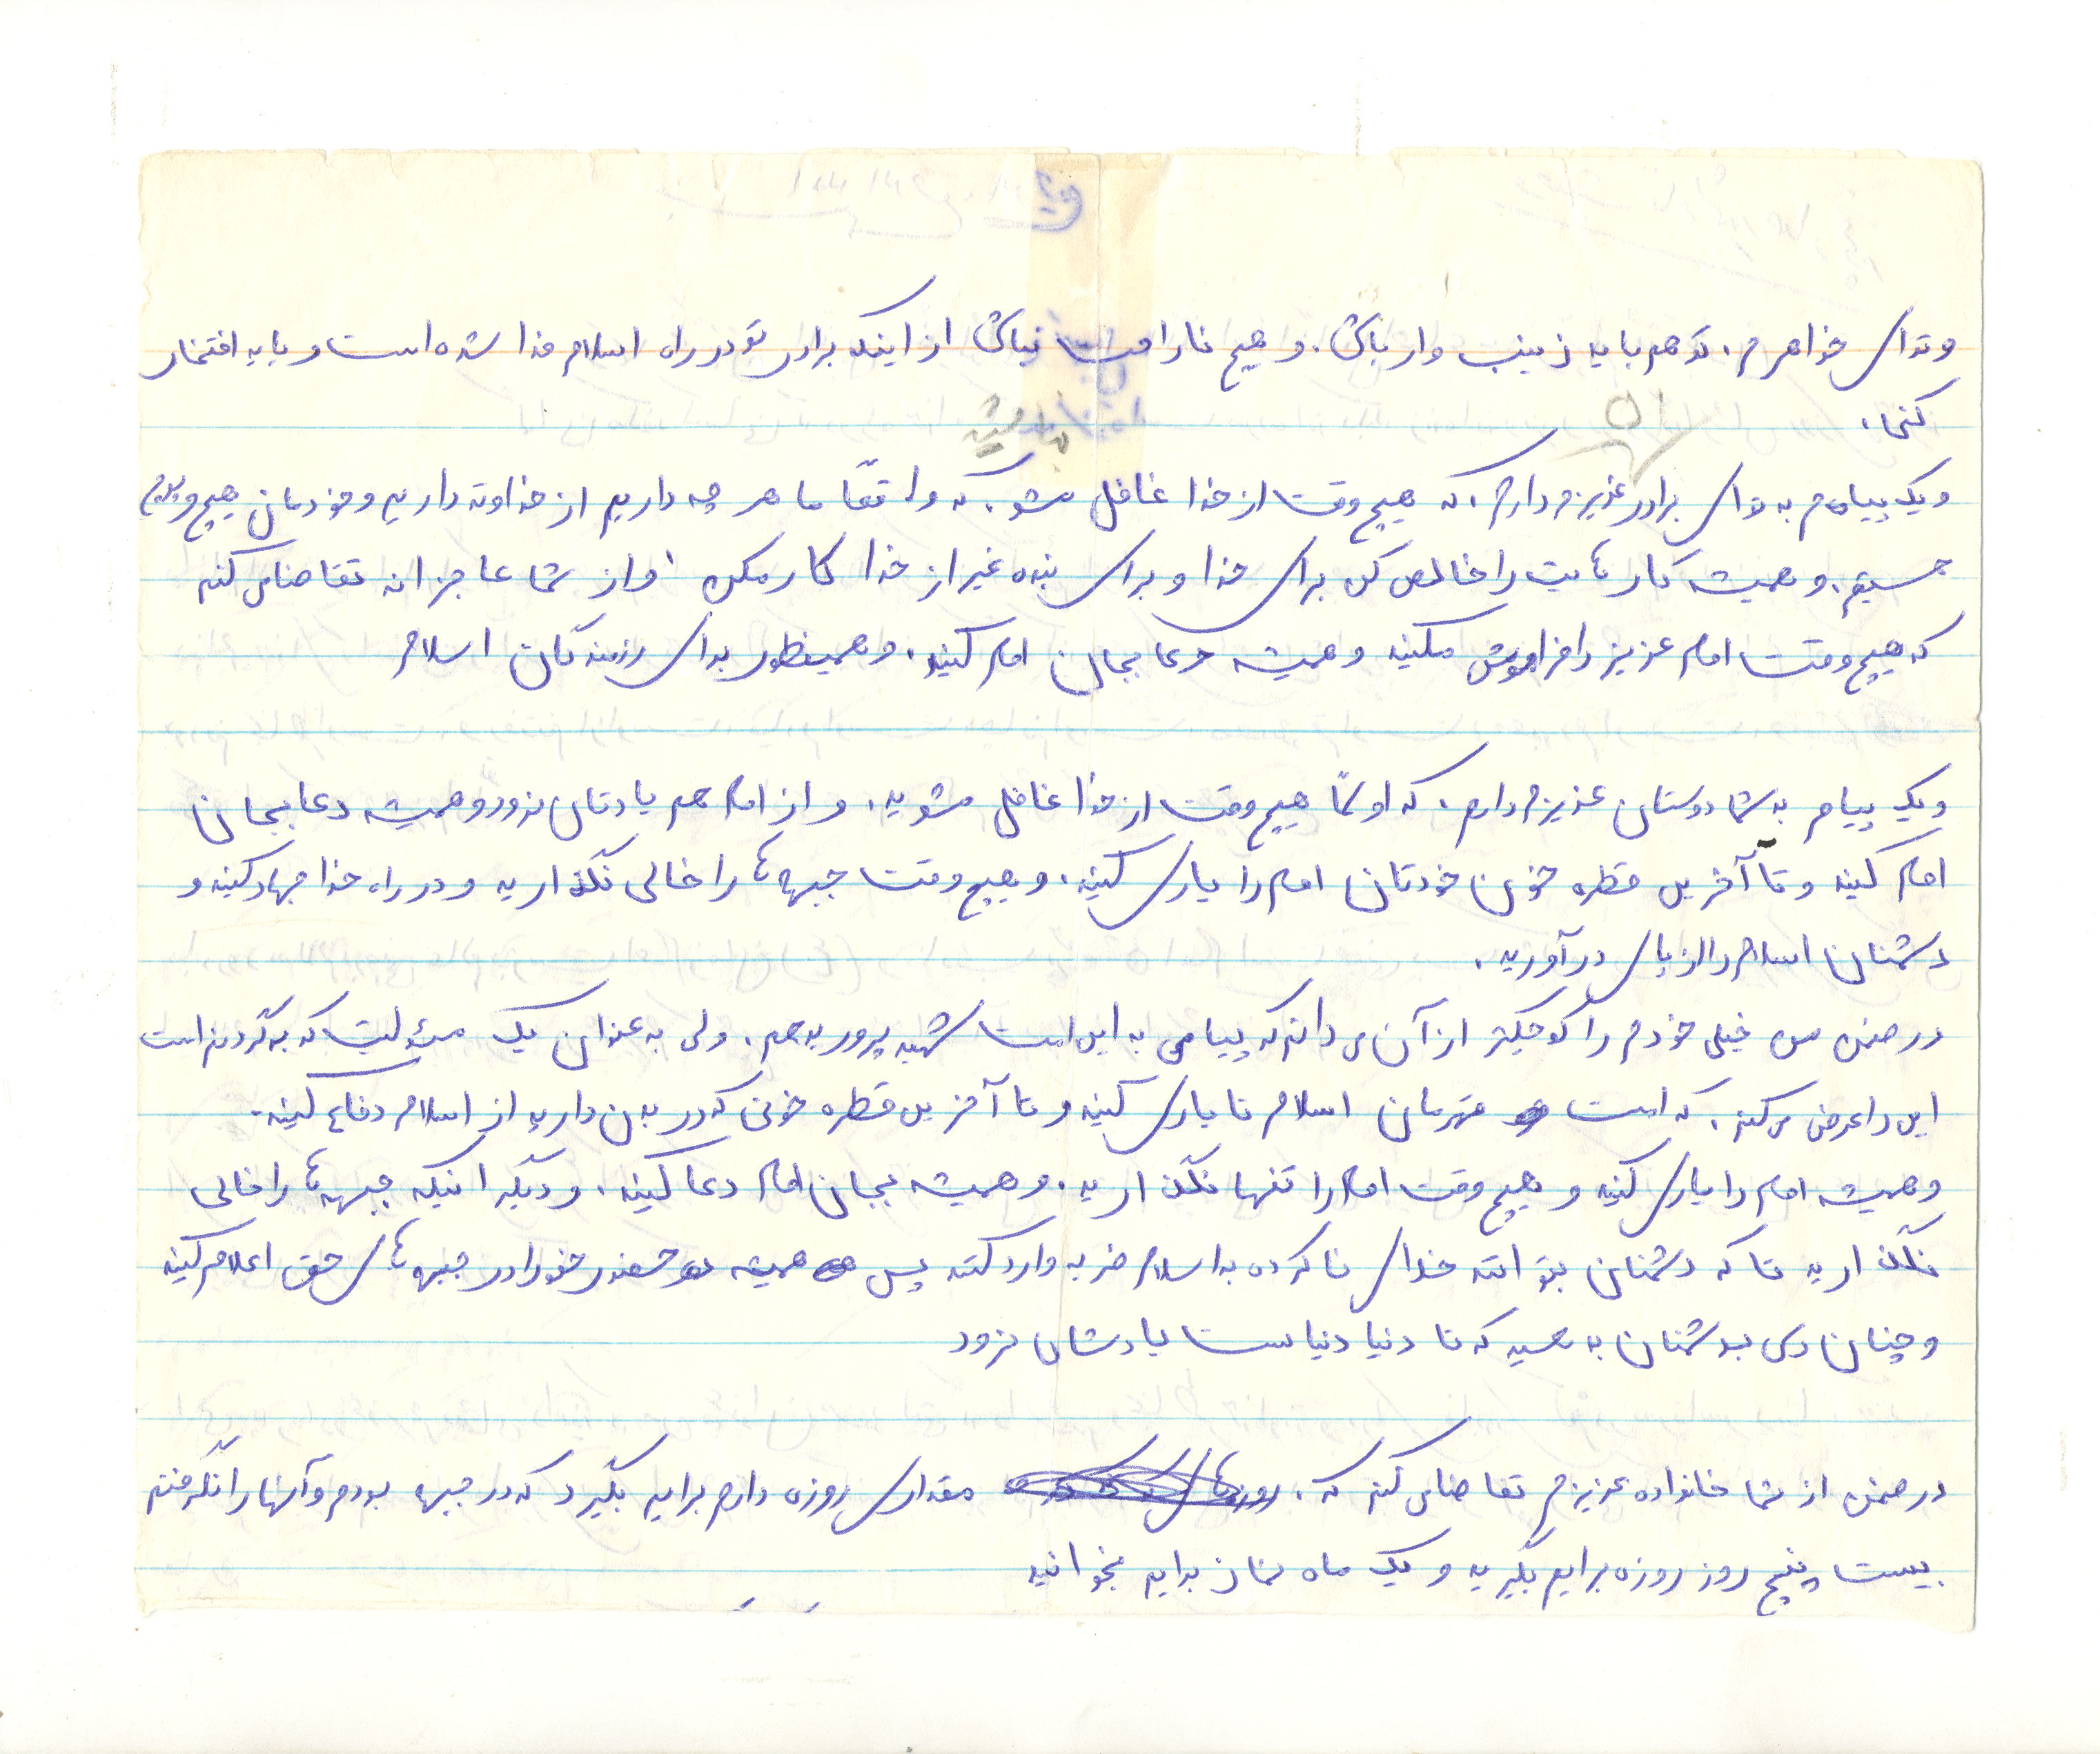 و تو ای خواهرم. تو هم باید زینب وار باشی. و هیچ ناراحت نباش از اینکه برادر تو در راه اسلام فدا شده است و باید افتخار
کنی.
و یک پیام به تو ای برادر عزیزم دارم. که هیچ وقت از خدا غافل مشو. که واقعاً ما هر چه داریم از خداوند داریم و خودمان هیچ و پوچ
هستیم. و همیشه کارهایت را خالص کن برای خدا و برای بنده غیر از خدا کار مکن. و از شما عاجزانه تقاضا می کنم
که هیچ وقت امام عزیز را فراموش مکنید و همیشه دعا بجان امام کنید. و همینطور برای رزمندگان اسلام
و یک پیام به شما دوستان عزیزم دارم. که اولاً هیچ وقت از خدا غافل مشوید. و از امام هم یادتان نرود و همیشه دعا بجان
امام کنید و تا آخرین قطره خون خودتان امام را یاری کنید. و هیچ وقت جبهه ها را خالی نگذارید و در راه خدا جهاد کنید و
دشمنان اسلام را از پای در آورید.
در ضمن من خیلی خودم را کوچکتر از آن می دانم که پیامی به این امت شهید پرور بدهم. ولی به عنوان یک مسئولیت که به گردنم است
این را عرض می کنم. که امت قهرمان اسلام را یاری کنید و تا آخرین قطره خونی که در بدن دارید از اسلام دفاع کنید.
و همیشه امام را یاری کنید و هیچ وقت امام را تنها نگذارید. و همیشه بجان امام دعا کنید. و دیگر اینکه جبهه ها را خالی
نگذارید تا که دشمنان بتوانند خدای ناکرده به اسلام ضربه وارد کنند پس همیشه حضور خود را در جبهه های حق اعلام کنید
و چنان درسی به دشمنان بدهید که تا دنیا دنیاست یادشان نرود
در ضمن از شما خانواده عزیزم تقاضا می کنم که. مقداری روزه دارم برایم بگیرید که در جبهه بودم و آنها را نگرفتم
بیست پنج روز روزه برایم بگیرید و یک ماه نماز برایم بخوانید